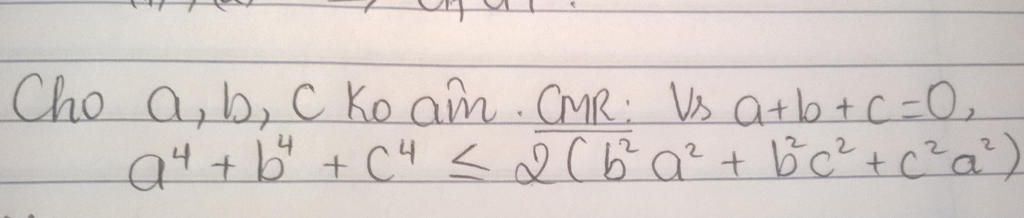 Cho a, b, c ko âm. CMR: Vs a+b+c=0,
a⁴ + b⁴ + c⁴ ≤ 2(b²a² + b²c² + c²a²)